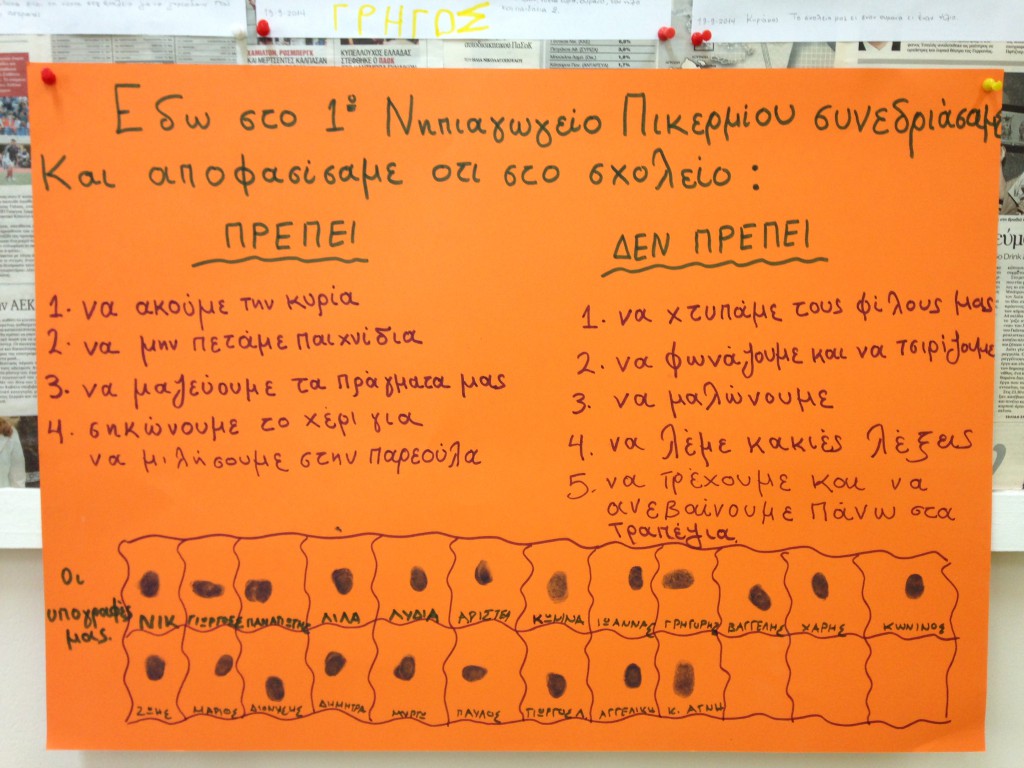 ΓΡΗΓΟΣ
19-9-2014
ΚΑΙ ΜΕΡΤΣΕΝΤΕΣ ΚΑΛΠΑΣΑΝ
ΚΥΠΕΛΛΟΥΧΟΣ ΕΛΛΑΔΑΣ
ΣΤΕΦΘΗΚΕ Ο ΠΑΟΚ
Εδω στο 1ο Νηπιαγωγείο Πικερμίου συνεδριάσαμε
Και αποφασίσαμε οτι στο σχολείο:
ΠΡΕΠΕΙ
1. να ακούμε την κυρία
2. να μην πετάμε παιχνίδια
3. να μαζεύουμε τα πράγματα μας
4. σηκώνουμε το χέρι για
να μιλήσουμε στην παρεούλα
ΔΕΝ ΠΡΕΠΕΙ
1. να χτυπάμε τους φίλους μας
2. να φωνάζουμε και να τσιρίζαμε
3. να μαλώνουμε
4. να λέμε κακιές λέξεις
5. να τρέχουμε και να
ανεβαίνουμε πάνω στα
τραπέζια.
Οι
υπογραφές
μας.
ΝΙΚ ΛΙΛΑ ΛΥΔΙΑ ΑΡΙΣΤΕΙ ΚΩΝΙΝΑ ΙΩΑΝΝΑΣ ΓΡΗΓΟΡΗΣ ΒΑΓΓΕΛΗΣ ΧΑΡΗΣ ΚΩΝΙΝΟΣ
ΖΩΗΣ ΜΑΡΙΟΣ ΔΙΟΝΥΣΗΣ ΔΗΜΗΤΡΑ ΜΥΡΤΩ ΠΑΥΛΟΣ ΓΙΩΡΓΟΣ Λ ΑΓΓΕΛΙΚΗ Κ. ΑΓΝΗ